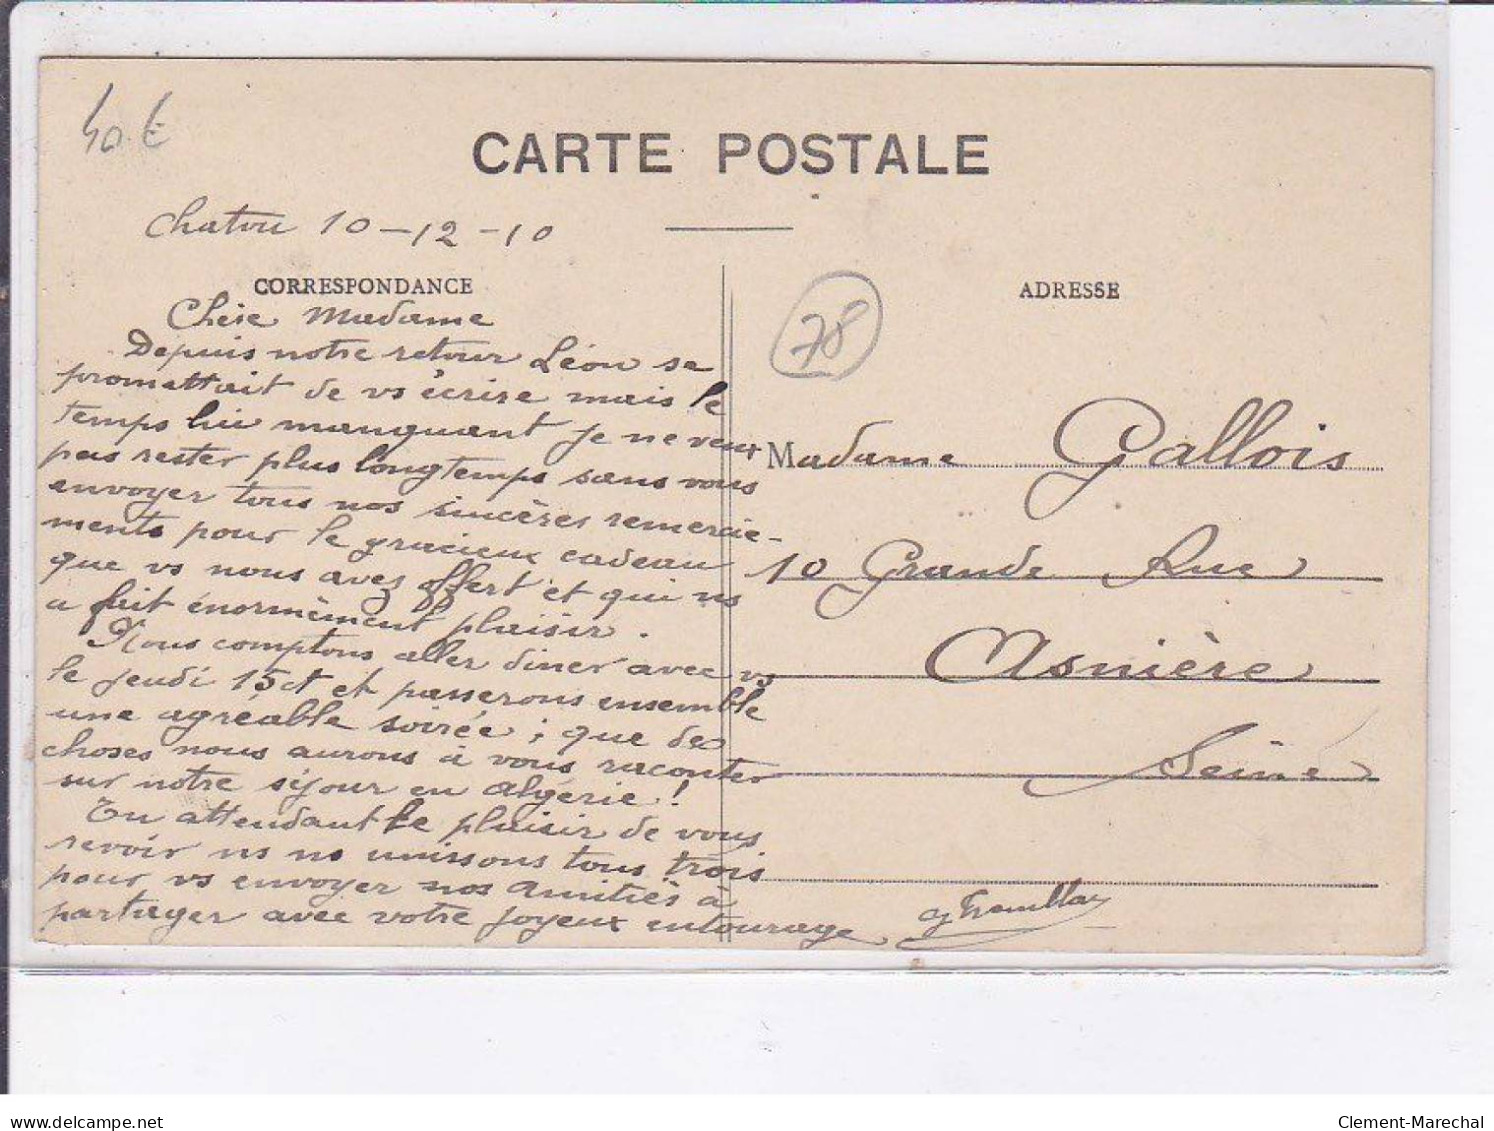 40 €
CARTE POSTALE
Chatou 10-12-10
CORRESPONDANCE
Chère Madame
Depuis notre retour Léon se
promettait de vs écrire mais le
temps lui manquant je ne veux
pas rester plus longtemps sans vous
envoyer tous nos sincères remercie-
ments pour le gracieux cadeau
que vs nous avez offert et qui ns
a fait énormèment plaisir.
Nous comptons aller diner avec vs
le jeudi 15 ct et passerons ensemble
une agréable soirée ; que de
choses nous aurons à vous raconter
sur notre séjour en Algérie !
En attendant le plaisir de vous
revoir ns ns unissons tous trois
pour vs envoyer nos amitiés à
partager avec votre joyeux entourage
ADRESSE
78
Madame Gallois
10 Grande Rue
Asnière
Seine
delcampe.net
Clement-Marechal